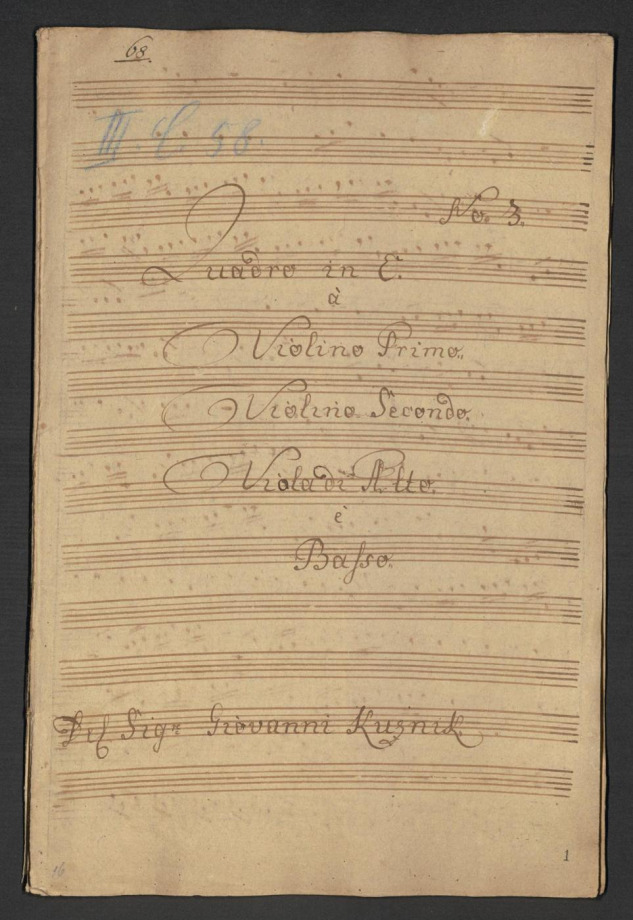 68.
III. C. 58.
No. 3.
Quadro in E.
à
Violino Primo.
Violino Secondo.
Viola di Alto.
è
Basso.
Del Sigr Giovanni Kuznik
16
1